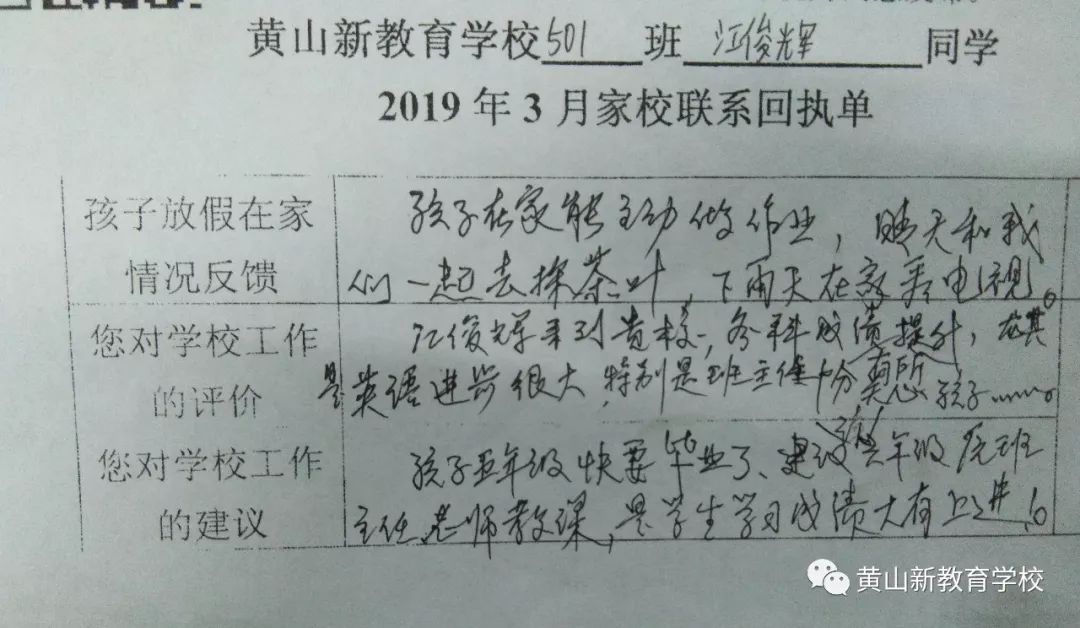 黄山新教育学校501班江俊辉同学
2019年3月家校联系回执单
孩子放假在家
情况反馈
孩子在家能主动做作业，晴天和我
们一起去采茶叶，下雨天在家看电视。
您对学校工作
的评价
江俊辉来到贵校，各科成绩提升，尤其
是英语进步很大，特别是班主任十分 孩子……。
您对学校工作
的建议
孩子五年级快要毕业了、建议 六年级原班
主任老师教课，是学生学习成绩大有上进。
黄山新教育学校